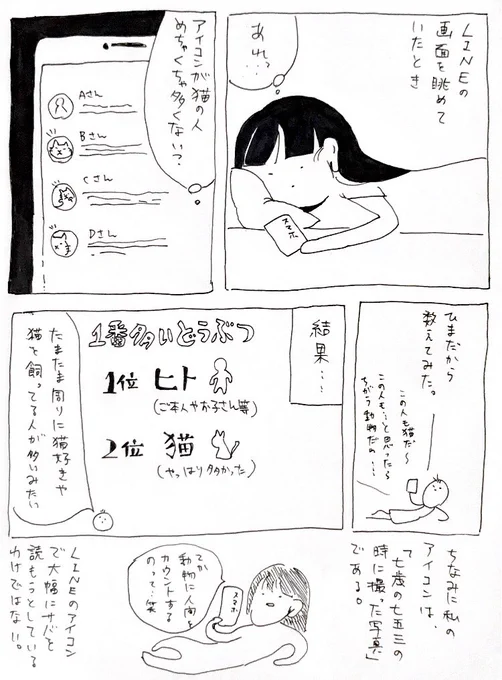 LINEの
画面を眺めて
いたとき
あれっ…
スマホ
アイコンが猫の人
めちゃくちゃ多くない？
Aさん
Bさん
Cさん
Dさん
ひまだから
数えてみた。
この人も猫だ〜
この人も…と思ったら
ちがう動物だの…
結果…
1番多いどうぶつ
1位 ヒト
(ご本人やお子さん等)
2位 猫
(やっぱり多かった)
たまたま周りに猫好きや
猫を飼ってる人が多いみたい
ちなみに私の
アイコンは、
「七歳の七五三の
時に撮った写真」
である。
てか
動物に人間を
カウントする
のって…笑
スマホ
LINEのアイコン
で大幅にサバを
読もうとしている
わけではない。